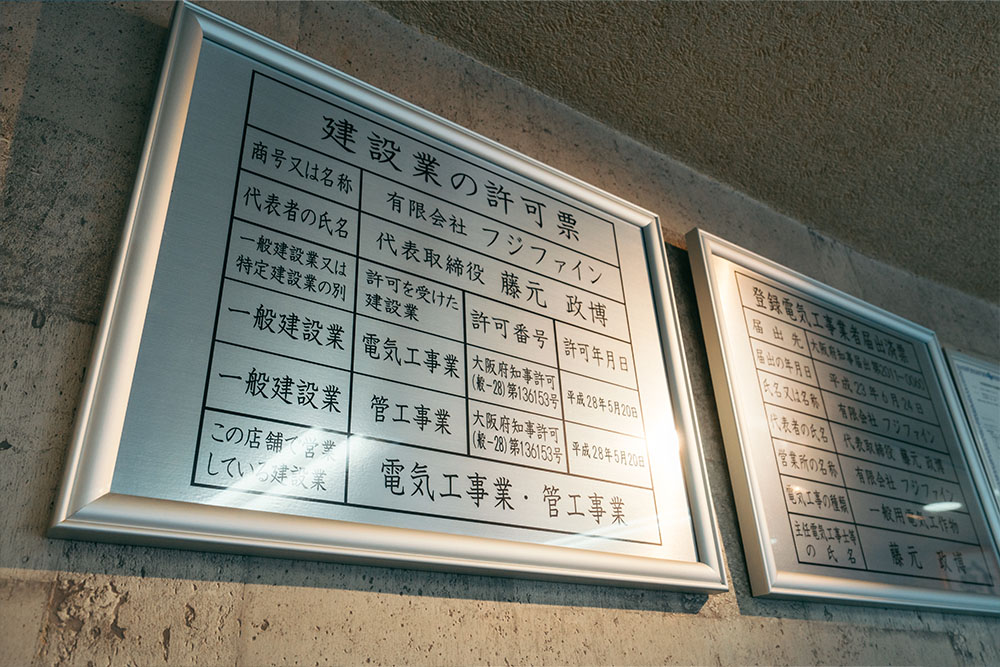 建設業の許可票
商号又は名称
有限会社 フジファイン
代表者の氏名
代表取締役 藤元 政博
一般建設業又は
特定建設業の別
許可を受けた
建設業
許可番号
許可年月日
一般建設業
電気工事業
大阪府知事許可
(般-28)第136153号
平成28年5月20日
一般建設業
管工事業
大阪府知事許可
(般-28)第136153号
平成28年5月20日
この店舗で営業
している建設業
電気工事業・管工事業
登録電気工事業者届出済票
届出先
大阪府知事届出第2011-0060
届出の年月日
平成23年6月24日
氏名又は名称
有限会社 フジファイン
代表者の氏名
代表取締役 藤元 政博
営業所の名称
有限会社 フジファイン
電気工事の種類
一般用電気工作物
主任電気工事士等
の氏名
藤元 政博